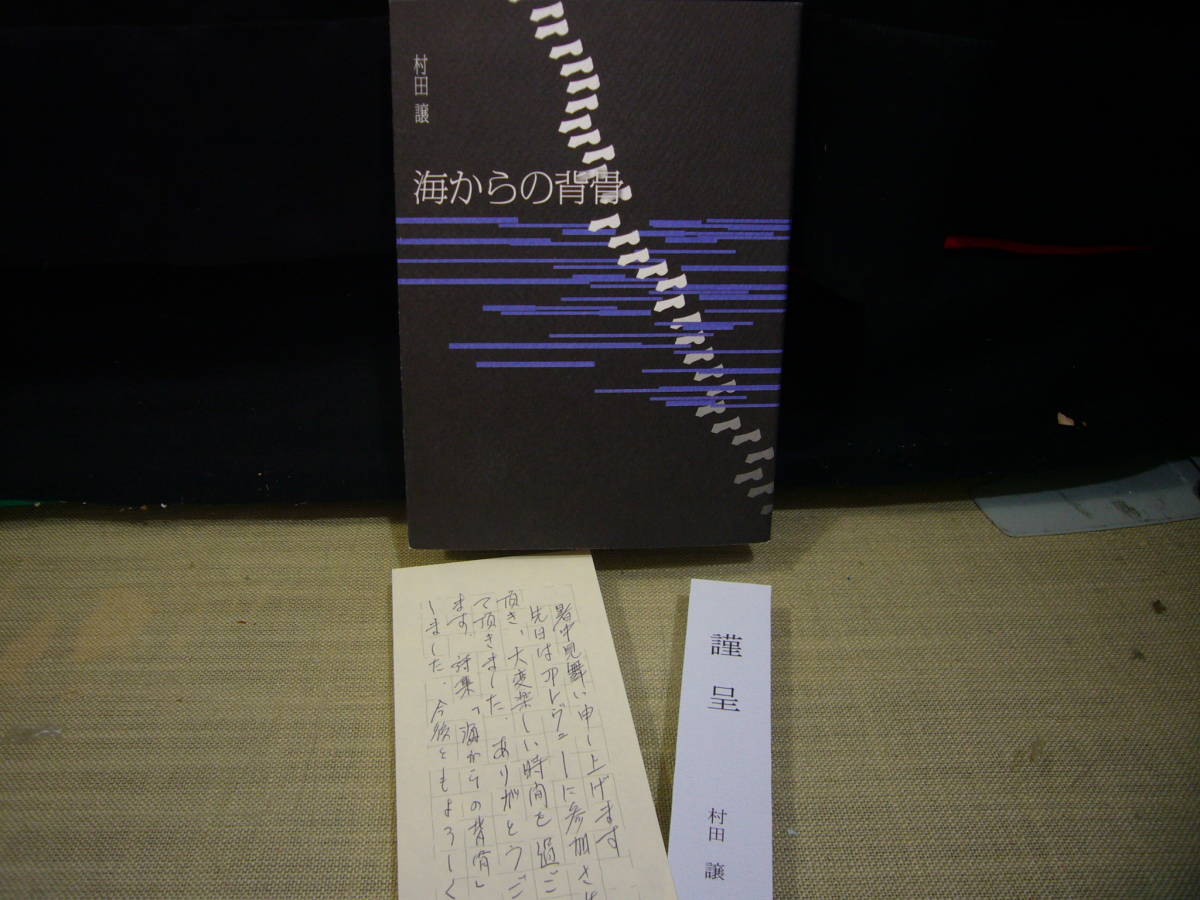 村田 譲
海からの背骨
暑中見舞い申し上げます
先日はJPレヴューに参加させ
頂き、大変楽しい時間を過ご
て頂きました。ありがとうご
ます。詩集「海からの背骨」
しました。今後ともよろしく
謹呈
村田 譲